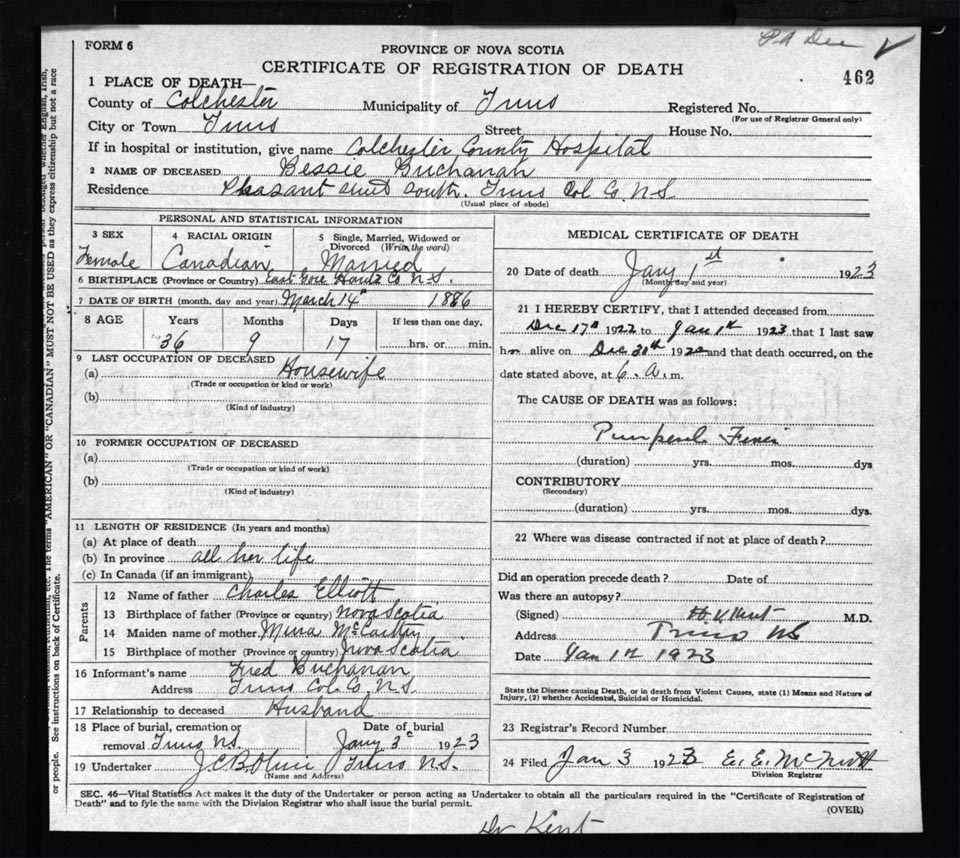 PA Dec ✓
FORM 6
PROVINCE OF NOVA SCOTIA
CERTIFICATE OF REGISTRATION OF DEATH
462
1 PLACE OF DEATH—
County of Colchester Municipality of Truro Registered No.
(For use of Registrar General only)
City or Town Truro Street House No.
If in hospital or institution, give name Colchester County Hospital
2 NAME OF DECEASED Bessie Buchanan
Residence Pleasant Street South. Truro Col Co. N.S
(Usual place of abode)
PERSONAL AND STATISTICAL INFORMATION
3 SEX 4 RACIAL ORIGIN 5 Single, Married, Widowed or
Divorced (Write the word)
Female Canadian Married
6 BIRTHPLACE (Province or Country) East Gore Hants Co N.S.
7 DATE OF BIRTH (month, day and year) March 14th 1886
8 AGE Years Months Days If less than one day,
36 9 17 hrs. or min.
9 LAST OCCUPATION OF DECEASED
(a) Housewife
(Trade or occupation or kind or work)
(b)
(Kind of industry)
10 FORMER OCCUPATION OF DECEASED
(a)
(Trade or occupation or kind of work)
(b)
(Kind of industry)
11 LENGTH OF RESIDENCE (In years and months)
(a) At place of death
(b) In province all her life
(c) In Canada (if an immigrant)
Parents
12 Name of father Charles Elliott
13 Birthplace of father (Province or country) Nova Scotia
14 Maiden name of mother Mina
15 Birthplace of mother (Province or country) Nova Scotia
16 Informant's name Fred Buchanan
Address Truro Col. Co. N.S.
17 Relationship to deceased Husband
18 Place of burial, cremation or Date of burial
removal Truro N.S. Jany 3rd 1923
19 Undertaker Truro N.S.
(Name and Address)
MEDICAL CERTIFICATE OF DEATH
20 Date of death Jany 1st 1923
(Month, day and year)
21 I HEREBY CERTIFY, that I attended deceased from
Dec 17th 1922 to Jan 1st 1923 that I last saw
her alive on Dec 31th 1922 and that death occurred, on the
date stated above, at 6. a. m.
The CAUSE OF DEATH was as follows:
Puerperal Fever
(duration) yrs. mos. dys
CONTRIBUTORY
(Secondary)
(duration) yrs. mos. dys.
22 Where was disease contracted if not at place of death?
Did an operation precede death? Date of
Was there an autopsy?
(Signed) H V Kent M.D.
Address Truro NS
Date Jan 1st 1923
State the Disease causing Death, or in death from Violent Causes, state (1) Means and Nature of
Injury, (2) whether Accidental, Suicidal or Homicidal.
23 Registrar's Record Number
24 Filed Jan 3 1923 E. E. McNutt
Division Registrar
SEC. 46—Vital Statistics Act makes it the duty of the Undertaker or person acting as Undertaker to obtain all the particulars required in the "Certificate of Registration of
Death" and to fyle the same with the Division Registrar who shall issue the burial permit.
(OVER)
Dr Kent
or people. See instructions on back of Certificate.
etc. The terms "AMERICAN" OR "CANADIAN" MUST NOT BE USED as they express citizenship but not a race
whether English, Irish,